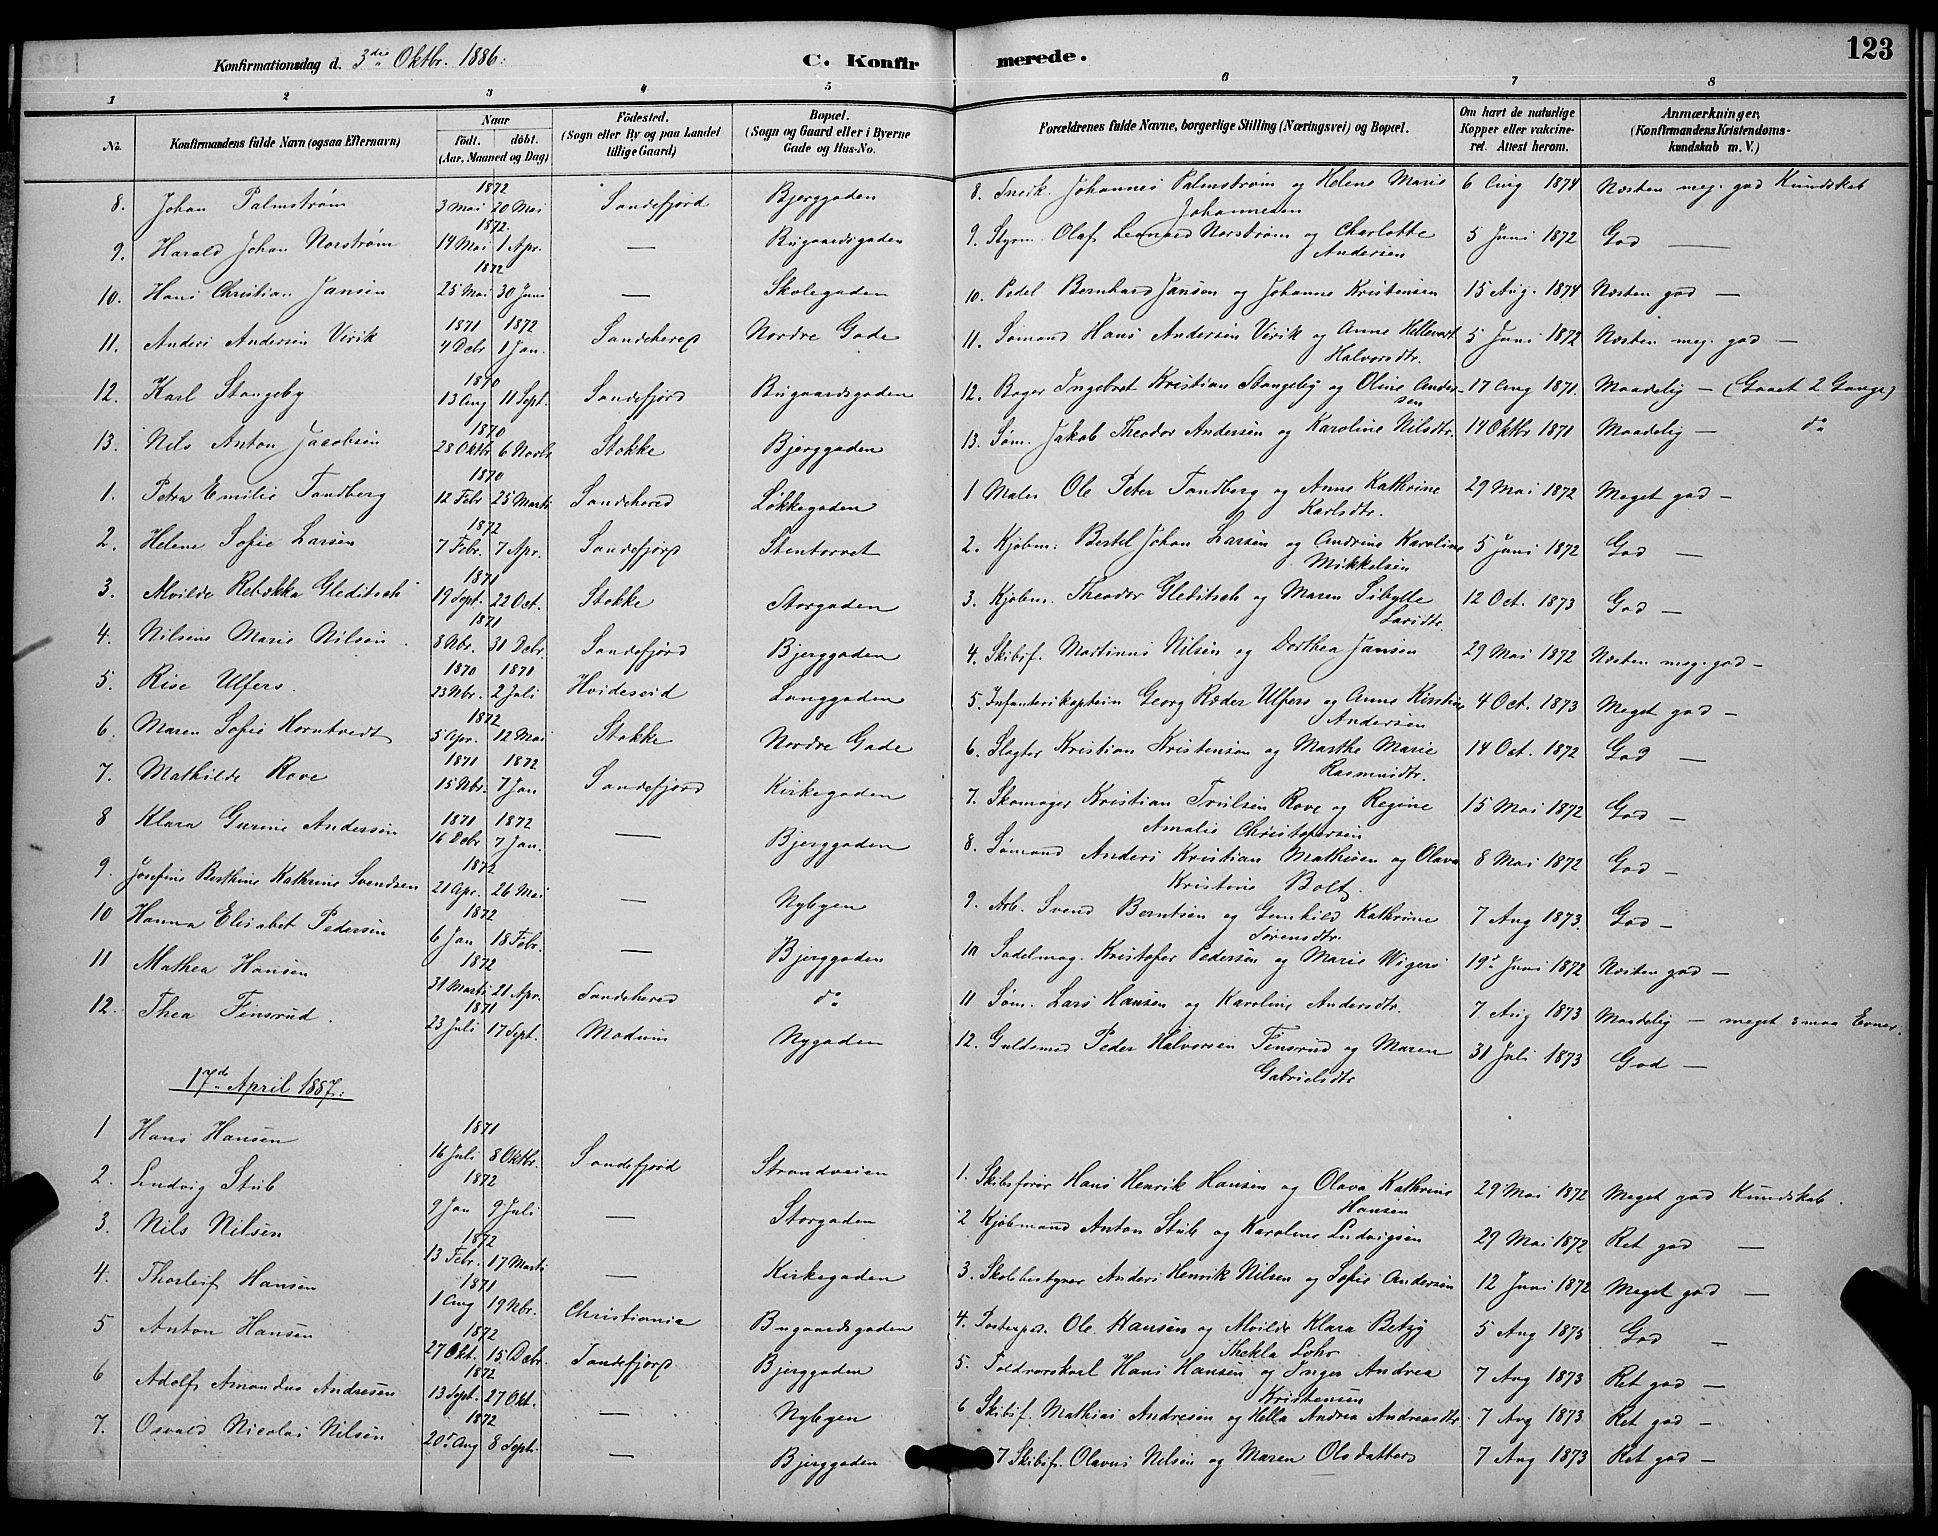 Konfirmationsdag d. 3die Oktbr. 1886. C. Konfirmerede. 123
1 2 3 4 5 6 7 8
No. Konfirmandens fulde Navn (ogsaa Efternavn) Naar født. døbt. (Aar, Maaned og Dag) Fødested. (Sogn eller By og paa Landet tillige Gaard) Bopæl. (Sogn og Gaard eller i Byerne Gade og Hus-No. Forældrenes fulde Navne, borgerlige Stilling (Næringsvei) og Bopæl. Om havt de naturlige Kopper eller vakcineret. Attest herom. Anmærkninger, (Konfirmandens Kristendomskundskab m. V.)
8. Johan Palmstrøm 1872 3 Mai 20 Mai Sandefjord Bjerggaden 8. Snedk. Johannes Palmstrøm og Helene Marie Johannesen 6 Aug 1874 Næsten meg. god Kundskab
9. Harald Johan Norstrøm 1872. 14 Mai 1 Apr. — Bugaardsgaden 9. Styrm. Olaf Leonard Norstrøm og Charlotte Andersen 5 Juni 1872 God —
10. Hans Christian Jansen 1872 25 Mai 30 Juni — Skolegaden 10. Pedel Bernhard Jansen og Johanne Kristensen 15 Aug. 1874 Næsten god —
11. Anders Andersen Virik 1871 4 Debr 1872 1 Jan. Sandeherred Nordre Gade 11. Sømand Hans Andersen Virik og Anne Hellevart Halvorsdtr. 5 Juni 1872 Næsten meg. god —
12. Karl Stangeby 1870 13 Aug 11 Sept. Sandefjord Bugaardsgaden 12. Bager Ingebret Kristian Stangeby og Oline Andersen 17 Aug 1871. Maadelig — (Gaaet 2 Gange)
13. Nils Anton Jacobsen 1870 28 Oktbr 6 Novbr Stokke Bjerggaden 13. Søm. Jakob Theodor Andersen og Karoline Nilsdtr. 14 Oktbr 1871 Maadelig — do
1. Petra Emilie Tandberg 1870 12 Febr 25 Marts Sandeherred Løkkegaden 1 Maler Ole Peter Tandberg og Anne Kathrine Karlsdtr. 29 Mai 1872 Meget god —
2. Helene Sofie Larsen 1872 7 Febr. 7 Apr. Sandefjord Stentorvet 2. Kjøbm. Bertel Johan Larsen og Andrine Karoline Mikkelsen 5 Juni 1872 God —
3. Alvilde Rebekka Gleditsch 1871 19 Sept. 22 Oct. Stokke Storgaden 3. Kjøbm. Theodor Gleditsch og Maren Sibylle Larsdtr. 12 Oct. 1873 God —
4. Nilsine Marie Nilsen 1871 8 Nbr. 31 Debr. Sandefjord Bjerggaden 4. Skibsf. Martinus Nilsen og Dorthea Jansen 29 Mai 1872 Næsten meg. god —
5. Rise Ulfers. 1870 23 Nbr. 1871 2 Juli Hvideseid Langgaden 5. Infanterikaptein Georg Ræder Ulfers og Anne Kirstine Andersen 4 Oct. 1873 Meget god —
6. Maren Sofie Horntvedt 1872 5 Apr. 12 Mai Stokke Nordre Gade 6. Slagter Kristian Kristensen og Marthe Marie Rasmusdtr. 14 Oct. 1872 God —
7. Mathilde Rove 1871 15 Nbr. 1872 7 Jan Sandefjord Kirkegaden 7. Skomager Kristian Trulsen Rove og Regine Amalie Christofersen 15 Mai 1872 God —
8 Klara Gurine Andersen 1871 16 Debr 1872 7 Jan. — Bjerggaden 8. Sømand Anders Kristian Mathisen og Olava Kristine Bolt. 8 Mai 1872 God —
9. Josefine Berthine Kathrine Svendsen 1872 21 Apr. 26 Mai — Nybyen 9. Arb. Svend Berntsen og Gunhild Kathrine Sørensdtr. 7 Aug 1873. God —
10 Hanna Elisabet Pedersen 1872 6 Jan 18 Febr. — Bjerggaden 10 Sadelmag. Kristofer Pedersen og Marie Wigers 19de Juni 1872 Næsten god —
11 Mathea Hansen 1872 31 Marts 21 Apr. Sandeherred do 11 Søm. Lars Hansen og Karoline Andersdtr. 7 Aug 1873 Maadelig — meget smaa Evner.
12. Thea Finsrud. 1871 23 Juli 17 Sept. Modum Nygaden 12. Guldsmed Peder Halvorsen Finsrud og Maren Gabrielsdtr 31 Juli 1873 God —
17de April 1887.
1 Hans Hansen 1871 16 Juli 8 Oktbr. Sandefjord Strandveien 1. Skibsfører Hans Henrik Hansen og Olava Kathrine Hansen 29 Mai 1872 Meget god Kundskab.
2. Ludvig Stub 1872 9 Jan 9 Juli — Storgaden 2 Kjøbmand Anton Stub og Karoline Ludvigsen 29 Mai 1872 Ret god —
3. Nils Nilsen 1872 13 Febr. 17 Marts — Kirkegaden 3. Skolebestyrer Anders Henrik Nilsen og Sofie Andersen 12 Juni 1872 Meget god —
4. Thorleif Hansen 1871 1 Aug 19 Nbr. Christiania Bugaardsgaden 4. Postexped. Ole Hansen og Alvilde Klara Betzy Thekla Lohr 5 Aug 1873 God —
5 Anton Hansen 1872 27 Okt. 15 Debr. Sandefjord Bjerggaden 5. Toldrorskarl Hans Hansen og Inger Andrea Kristensen 7 Aug 1873 Ret god —
6 Adolf Amandus Andresen 1872 13 Sept. 27 Okt. — Nybyen 6 Skibsf. Mathias Andresen og Hella Andrea Andreasdtr. 7 Aug 1873 Ret god —
7. Osvald Nicolai Nilsen 1872 20de Aug 8 Sept. — Bjerggaden 7 Skibsf. Olavus Nilsen og Maren Olsdatter 7 Aug 1873 Ret god —